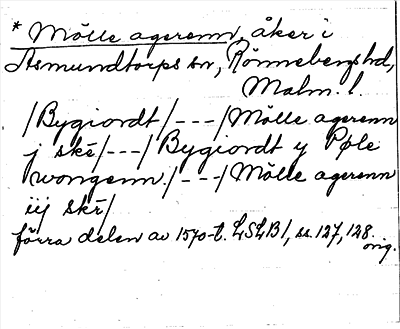 * Mölle agerenn, åker i
Asmundtorps sn, Rönnebergs hd,
Malm. l.
/Bygiordt/---/Mölle agerenn
j skē/---/Bygiordt y Pøle
wongenn./---/Mölle agerenn
iij skē/
förra delen av 1570-t. LSLB 1, ss. 127, 128.
orig.